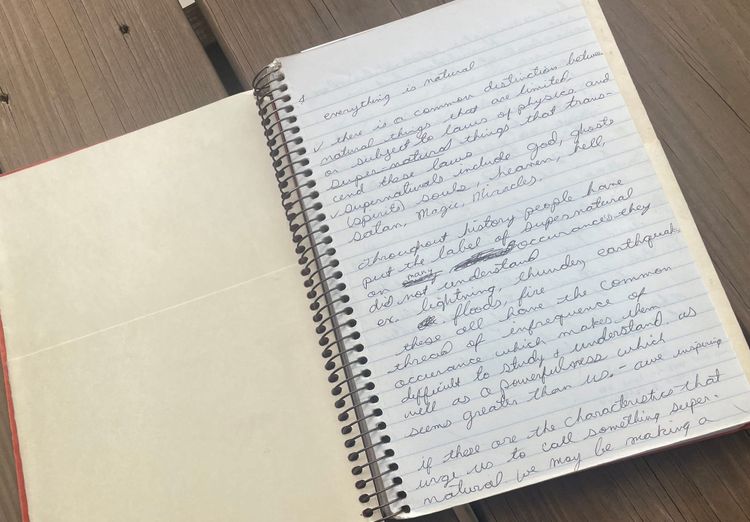 1 everything is natural
✓ there is a common distinction between
natural things that are limited
or subject to laws of physics and
supernatural things that trans-
cend these laws
✓ supernaturals include god, ghosts
(spirits) souls, heaven, hell,
satan, magic, miracles.
Throughout history people have
put the label of supernatural
on many occurances they
did not understand
ex. lightning, thunder, earthquake
floods, fire
these all have the common
thread of infrequence of
occurance which makes them
difficult to study & understand as
well as a powerfulness which
seems greater than us. - awe inspiring
if these are the characteristics that
urge us to call something super-
natural we may be making a